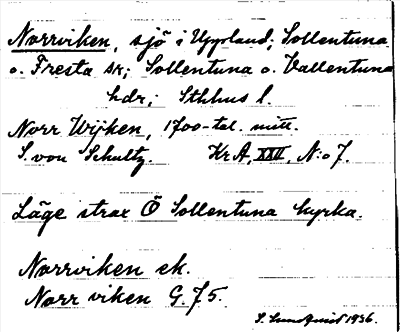 Norrviken, sjö i Uppland, Sollentuna
o. Fresta sk; Sollentuna o. Vallentuna
hdr; Sthlms l.
Norr Wijken, 1700-tal. mitt.
S. von Schultz. Kr A, XXII, N:o 7.
Läge strax Ö Sollentuna kyrka.
Norrviken ek.
Norr viken G. 75.
S. Lundquist 1936.